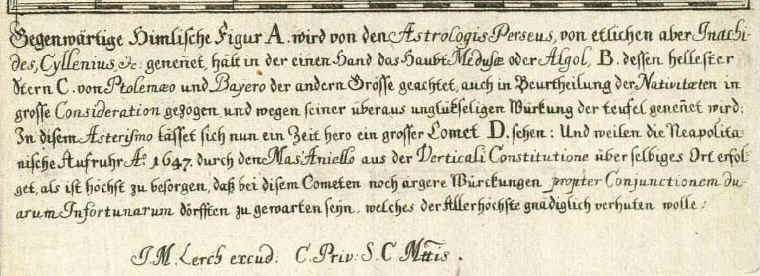 Gegenwärtige Himlische Figur A. wird von den Astrologis Perseus, von etlichen aber Inachi-
des, Cyllenius &c. genen̄et, halt in der einen Hand das Haubt Medusæ oder Algol, B. dessen hellester
Stern C. von Ptolemæo und Bayero der andern Grösse geachtet, auch in Beurtheilung der Nativitæten in
grosse Consideration gezogen und wegen seiner überaus unglükseligen Würkung der teufel genen̄et wird;
In disem Asterismo lässet sich nun ein Zeit hero ein grosser Comet D. sehen: Und weilen die Neapolita-
nische Aufruhr Aº. 1647. durch den Mas Aniello aus der Verticali Constitutione über selbiges Ort erfol-
get, als ist höchst zu besorgen, daß bei disem Cometen noch ärgere Würckungen propter Conjunctionem du-
arum Infortunarum dörfften zu gewarten seÿn, welches der Allerhöchste gnädiglich verhüten wolle:
J. M. Lerch excud: C. Priv: S. C. Mttis.